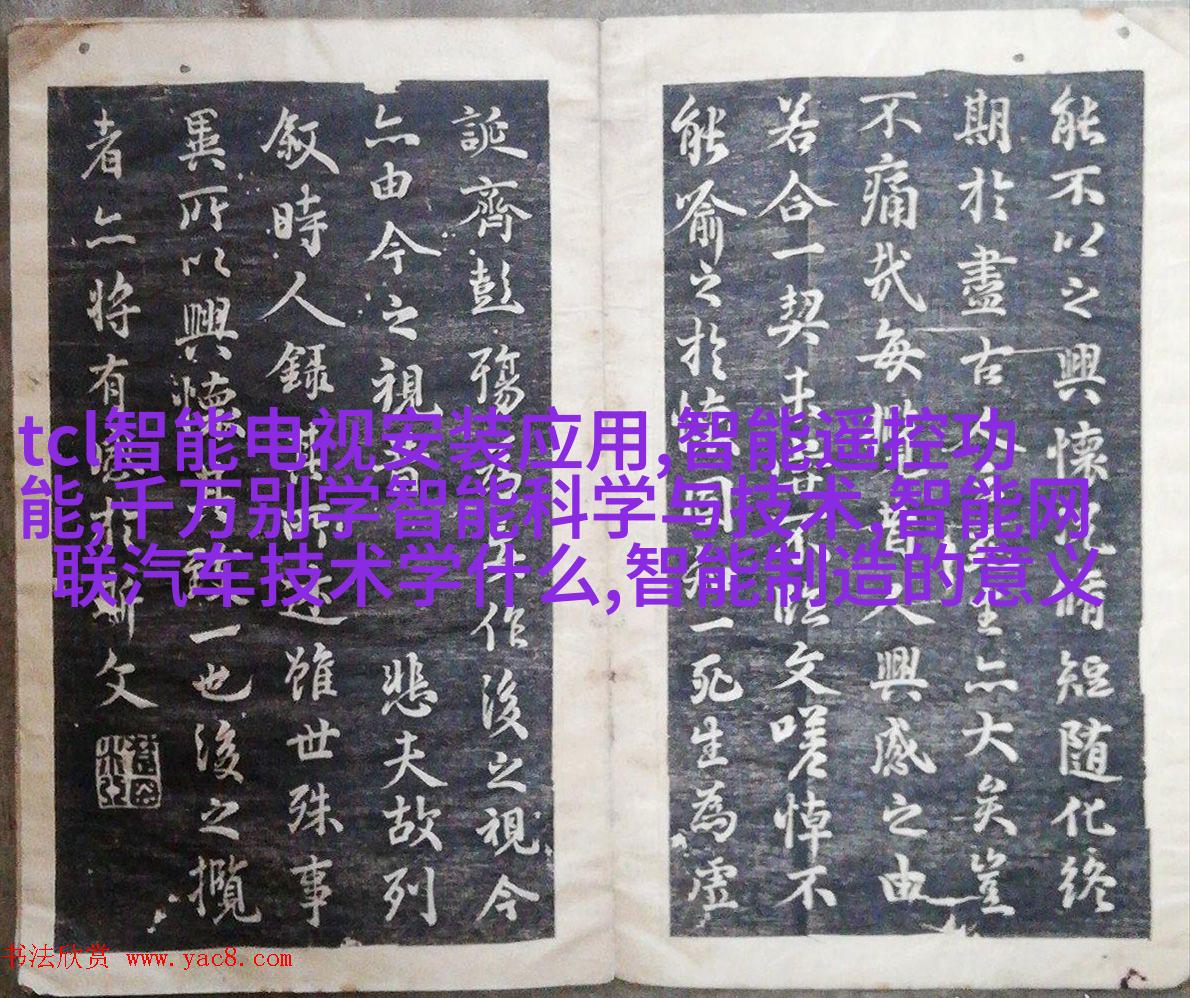 能不以之興懷況脩短随化終
期於盡古人云死生亦大矣豈
不痛哉每攬昔人興感之由
若合一契未嘗不臨文嗟悼不
能喻之於懷固知一死生為虛
誕齊彭殤為妄作後之視今
亦由今之視昔悲夫故列
叙時人録其所述雖世殊事
異所以興懷其致一也後之攬
者亦將有感於斯文
tcl智能电视安装应用,智能遥控功
能,千万别学智能科学与技术,智能网
联汽车技术学什么,智能制造的意义
书法欣赏 www.yac8.com